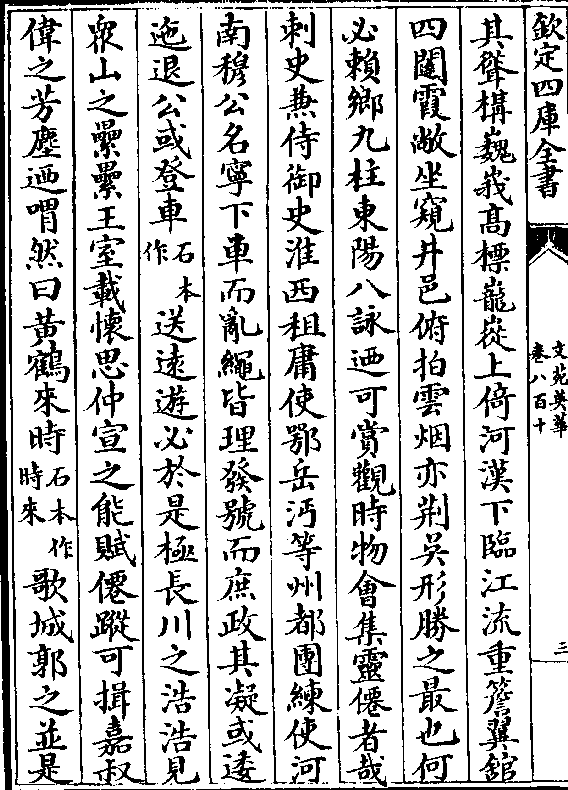 欽定四庫全書
文苑英華
卷八百十
三
其聳構巍峩髙標巃嵸上倚河漢下臨江流重簷翼舘
四闥霞敞坐窺井邑俯拍雲烟亦荆吳形勝之最也何
必賴鄉九柱東陽八詠廼可賞觀時物會集靈僊者哉
刺史兼侍御史淮西租庸使鄂岳沔等州都團練使河
南穆公名寧下車而亂繩皆理發號而庶政其凝或逶
迤退公或登車石本作送遠遊必於是極長川之浩浩見
衆山之纍纍王室載懷思仲宣之能賦僊蹤可揖嘉叔
偉之芳塵廼喟然曰黄鶴來時石本作時來歌城郭之並是